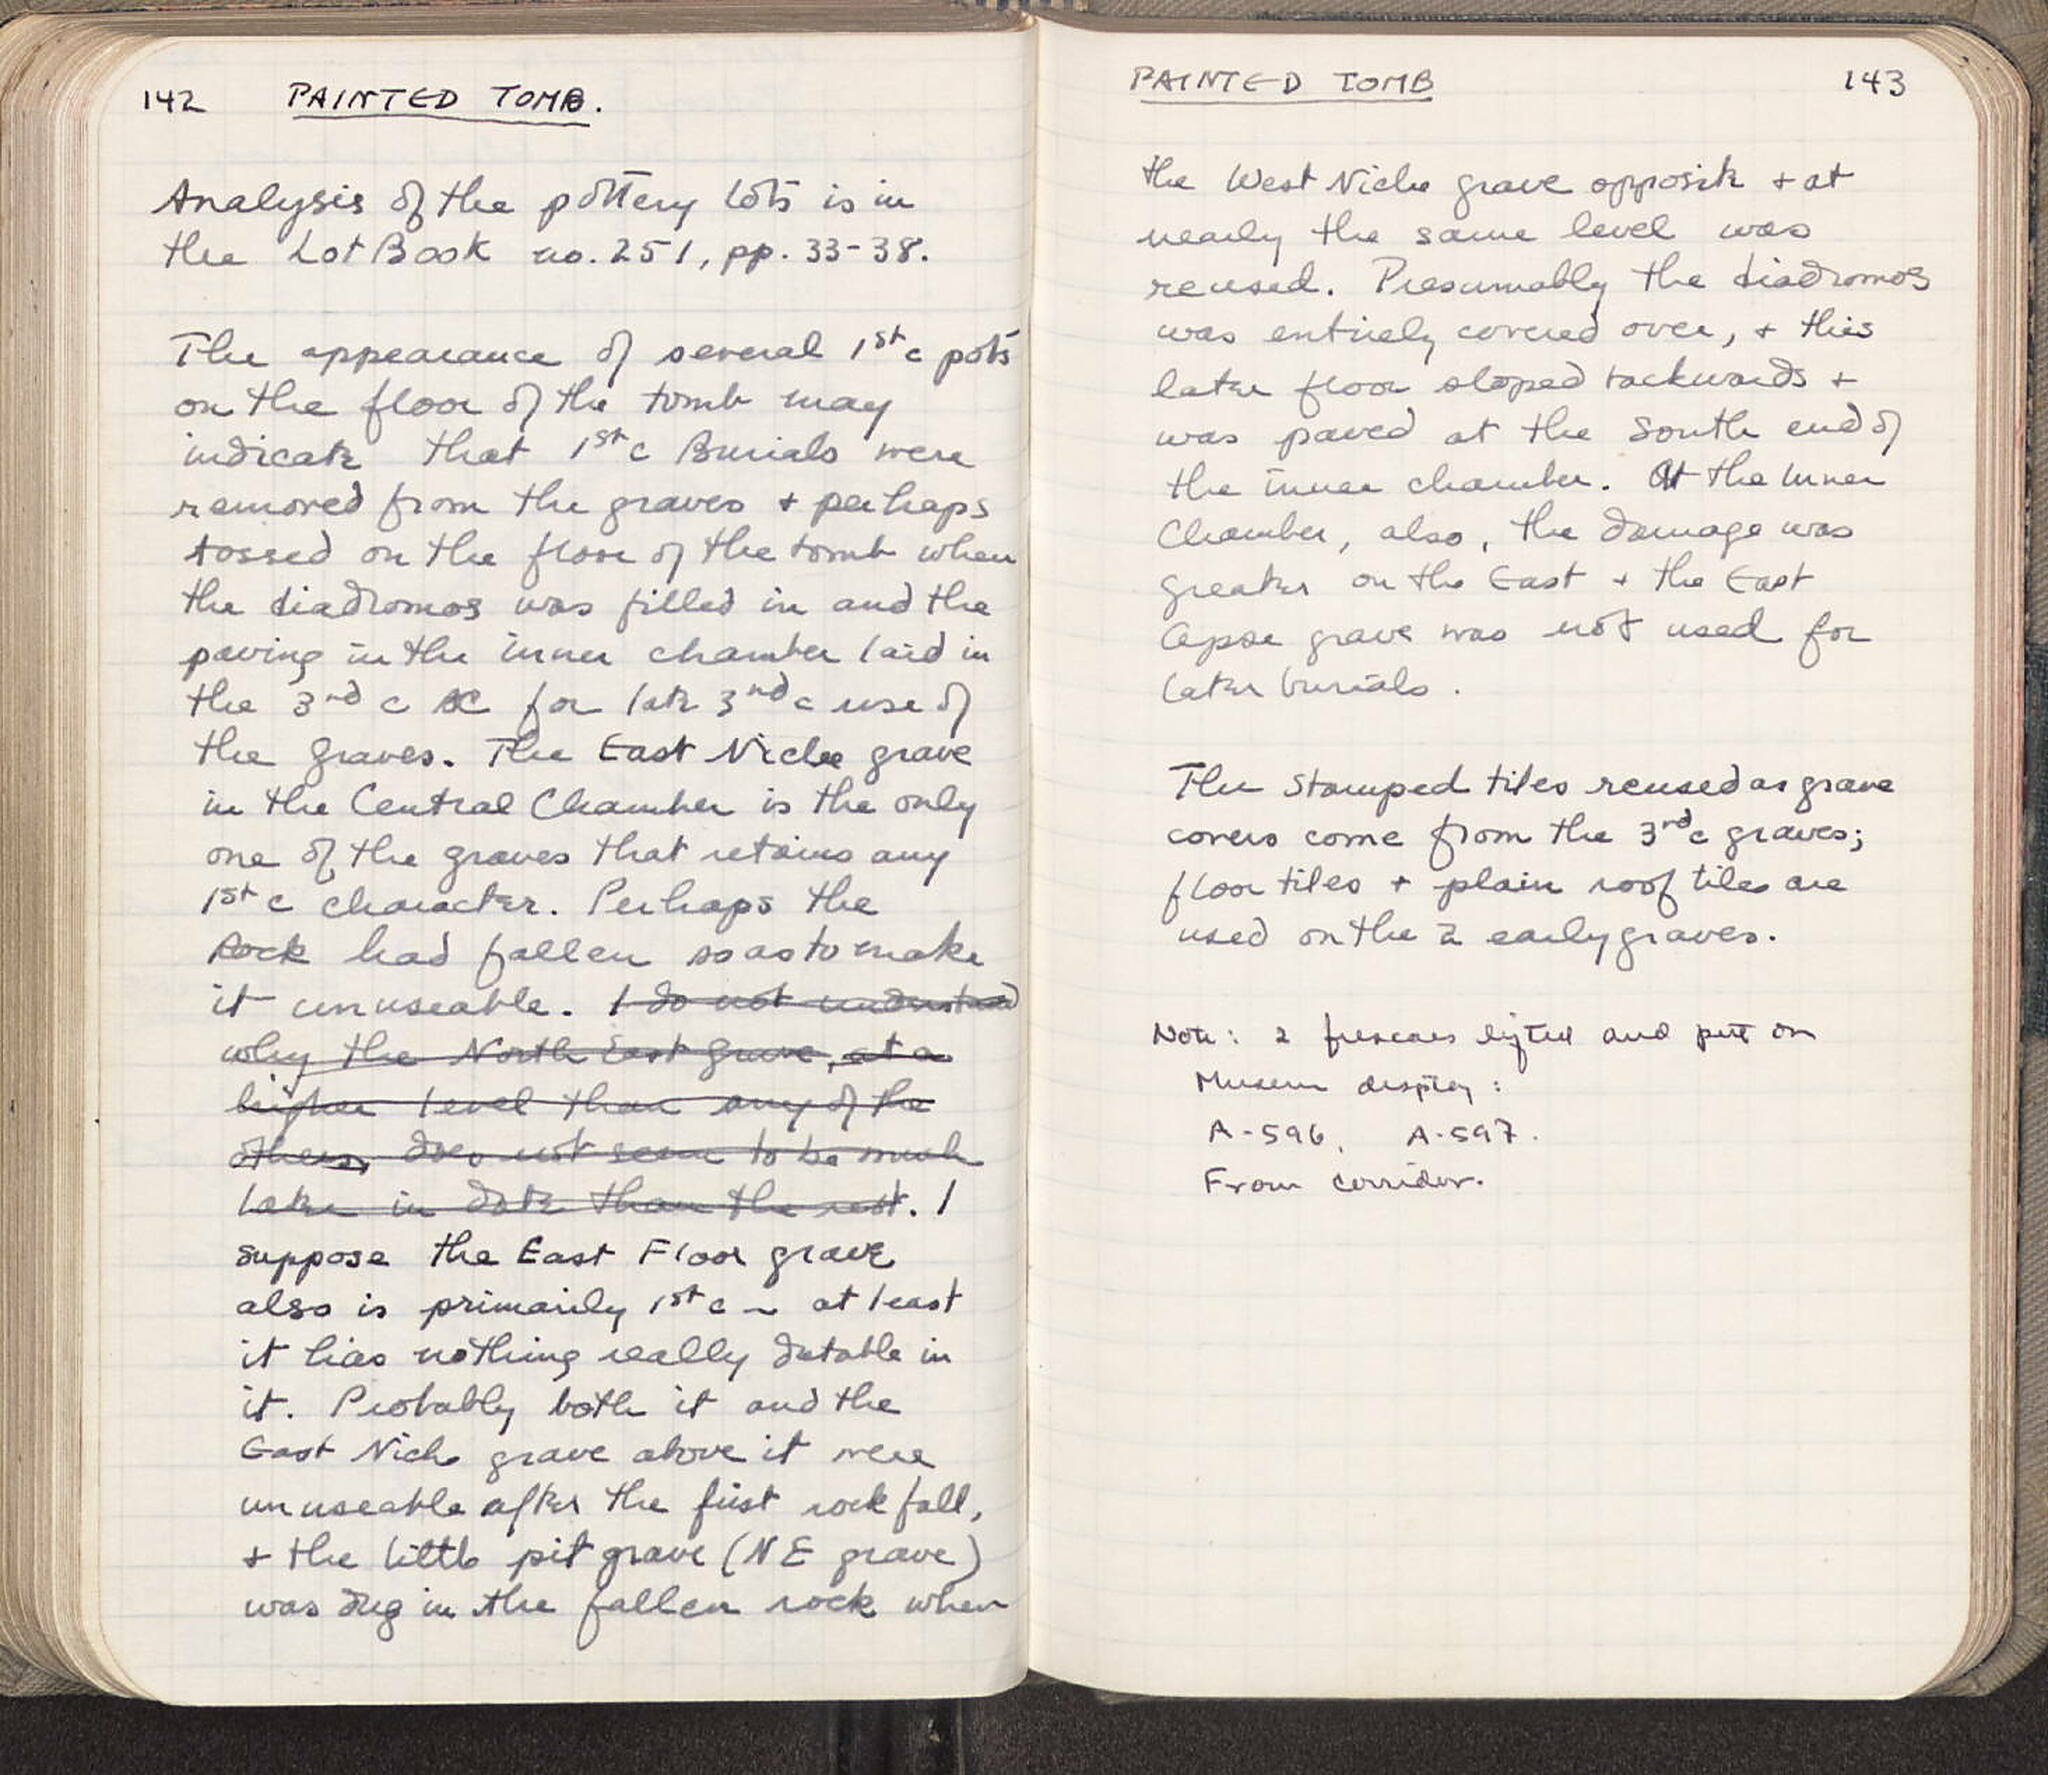 142 PAINTED TOMB.
Analysis of the pottery lots is in
the Lot Book no. 251, pp. 33-38.
The appearance of several 1st c pots
on the floor of the tomb may
indicate that 1st c Burials were
removed from the graves + perhaps
tossed on the floor of the tomb when
the diadromos was filled in and the
paving in the inner chamber laid in
the 3rd c for late 3rd c use of
the graves. The East Niche grave
in the Central Chamber is the only
one of the graves that retains any
1st c character. Perhaps the
Rock had fallen so as to make
it unuseable. I do not understand
why the North East Grave, at a
higher level than any of the
others, does not seem to be much
later in date than the rest. I
suppose the East Floor grave
also is primarily 1st c – at least
it has nothing really datable in
it. Probably both it and the
East Niche grave above it were
unuseable after the first rock fall,
+ the little pit grave (NE grave)
was dug in the fallen rock when
PAINTED TOMB 143
the West Niche grave opposite + at
nearly the same level was
reused. Presumably the diadromos
was entirely covered over, + this
later floor sloped backwards +
was paved at the South end of
the inner chamber. At the Inner
Chamber, also, the damage was
greater on the East + the East
Apse grave was not used for
later burials.
The stamped tiles reused as grave
covers come from the 3rd c graves;
floor tiles + plain roof tiles are
used on the 2 early graves.
Note: 2 frescoes lifted and put on
Museum display:
A-596, A-597.
From corridor.